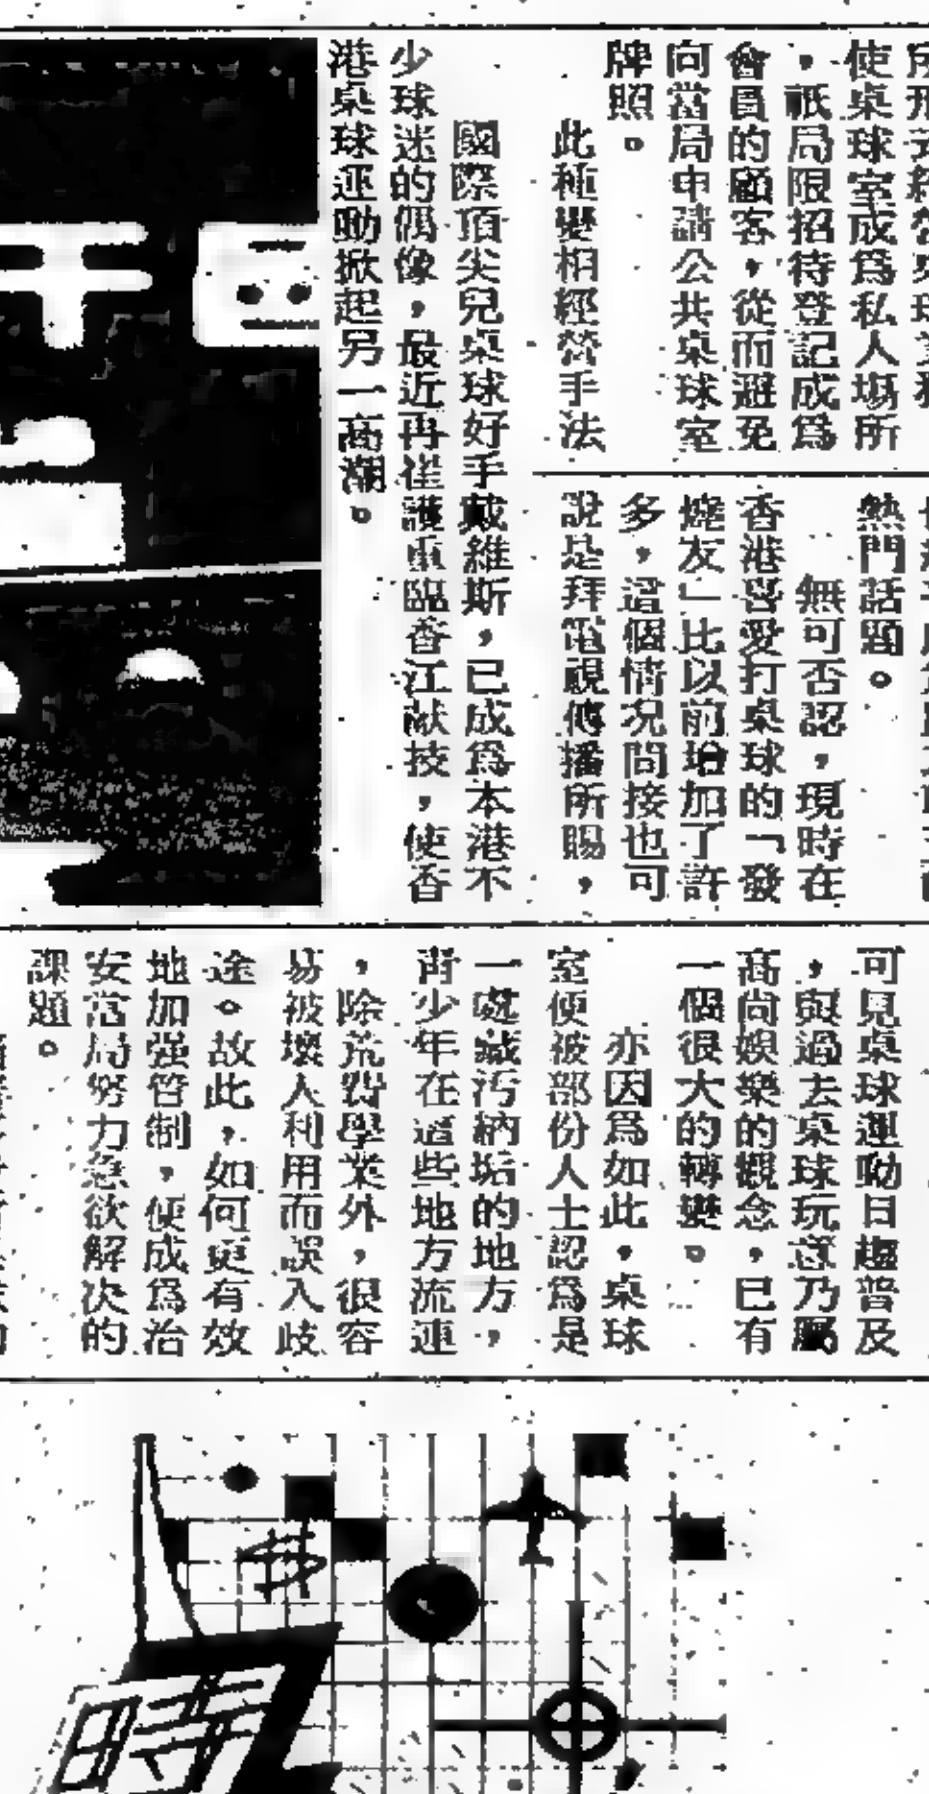 使桌球室成爲私人場所
，祇局限招待登記成爲
會員的顧客，從而避免
向當局申請公共桌球室
牌照。
此種變相經營手法
熱門話題。
無可否認，現時在
香港喜愛打桌球的「發
燒友」比以前增加了許
多，這個情况間接也可
說是拜電視傳播所賜，
國際頂尖兒桌球好手戴維斯，已成爲本港不
少球迷的偶像，最近再崔護重臨香江献技，使香
港桌球運動掀起另一高潮。
可見桌球運動日趨普及
，與過去桌球玩意乃屬
高尚娛樂的觀念，已有
一個很大的轉變。
亦因爲如此，桌球
室便被部份人士認爲是
一處藏汚納垢的地方，
靑少年在這些地方流連
，除荒費學業外，很容
易被壞人利用而誤入歧
途。故此，如何更有效
地加强管制，便成爲治
安當局努力急欲解决的
課題。
時